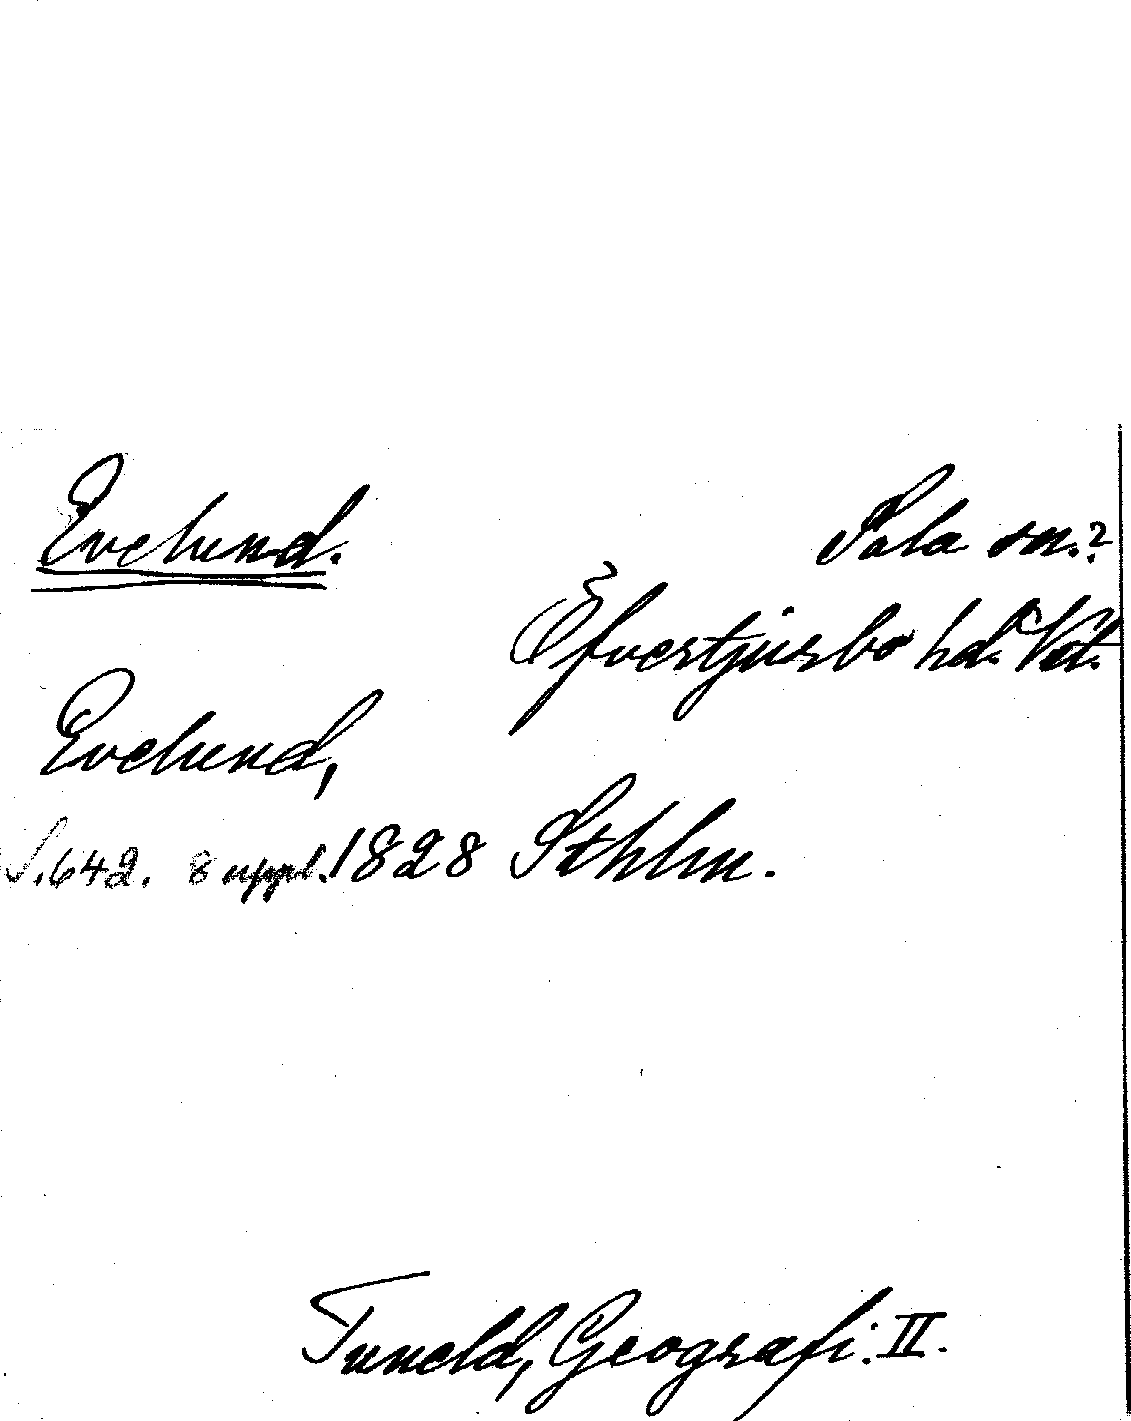 Evelund.
Sala sn.?
Öfvertjurbo hd. Vstl.
Evelund,
S.642. 8 uppl. 1828 Sthlm.
Tuneld, Geografi. II.